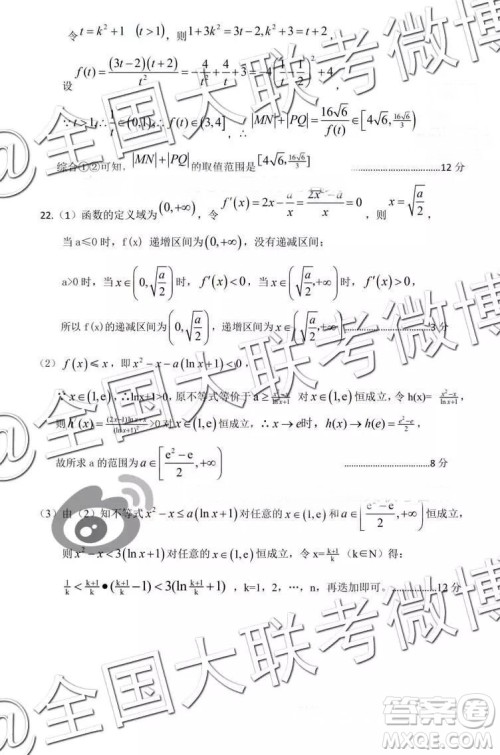 令 t=k²+1 (t>1)，则 1+3k²=3t-2, k²+3=t+2，
设 f(t)=(3t-2)(t+2)/t²=-4/t²+4/t+3=-4(1/t-1/2)²+4，
∵t>1∴1/t∈(0,1)∴f(t)∈(3,4] ∴|MN|+|PQ|=16√6/f(t)∈[4√6,16√6/3)
综合①②可知，|MN|+|PQ|的取值范围是[4√6,16√6/3]……………………12 分
22.（1）函数的定义域为(0,+∞)，令 f′(x)=2x-a/x=(2x²-a)/x=0，则 x=√(a/2)
当 a≤0 时，f(x) 递增区间为(0,+∞)，没有递减区间，
a>0 时，当 x∈(0,√(a/2))时，f′(x)<0，当 x∈(√(a/2),+∞)时，f′(x)>0，
所以 f(x)的递减区间为(0,√(a/2))，递增区间为(√(a/2),+∞)……………………3 分
（2）f(x)≤x，即 x²-x-a(lnx+1)<0，
∵x∈(1,e)，∴lnx+1>0，原不等式等价于 a≥(x²-x)/(lnx+1) 对 x∈(1,e)恒成立，令 h(x)=(x²-x)/(lnx+1)，
则 h′(x)=((2x-1)lnx+x)/(lnx+1)²>0 对 x∈(1,e)恒成立，∴x→e时，h(x)→h(e)=(e²-e)/2，
故所求 a 的范围为 a∈[(e²-e)/2,+∞)……………………8 分
（3）由（2）知不等式 x²-x≤a(lnx+1)对任意的 x∈(1,e)恒成立，a∈[(e²-e)/2,+∞)
则 x²-x<3(lnx+1)对任意的 x∈(1,e)恒成立，令 x=(k+1)/k（k∈N）得：
1/k<(k+1)/k•((k+1)/k-1)<3(ln(k+1)/k+1)，k=1，2，…，n，再迭加即可。……………12 分
@全国大联考微博
@全国大联考微博
@全国大联考微博
答案圈
MXQE.COM